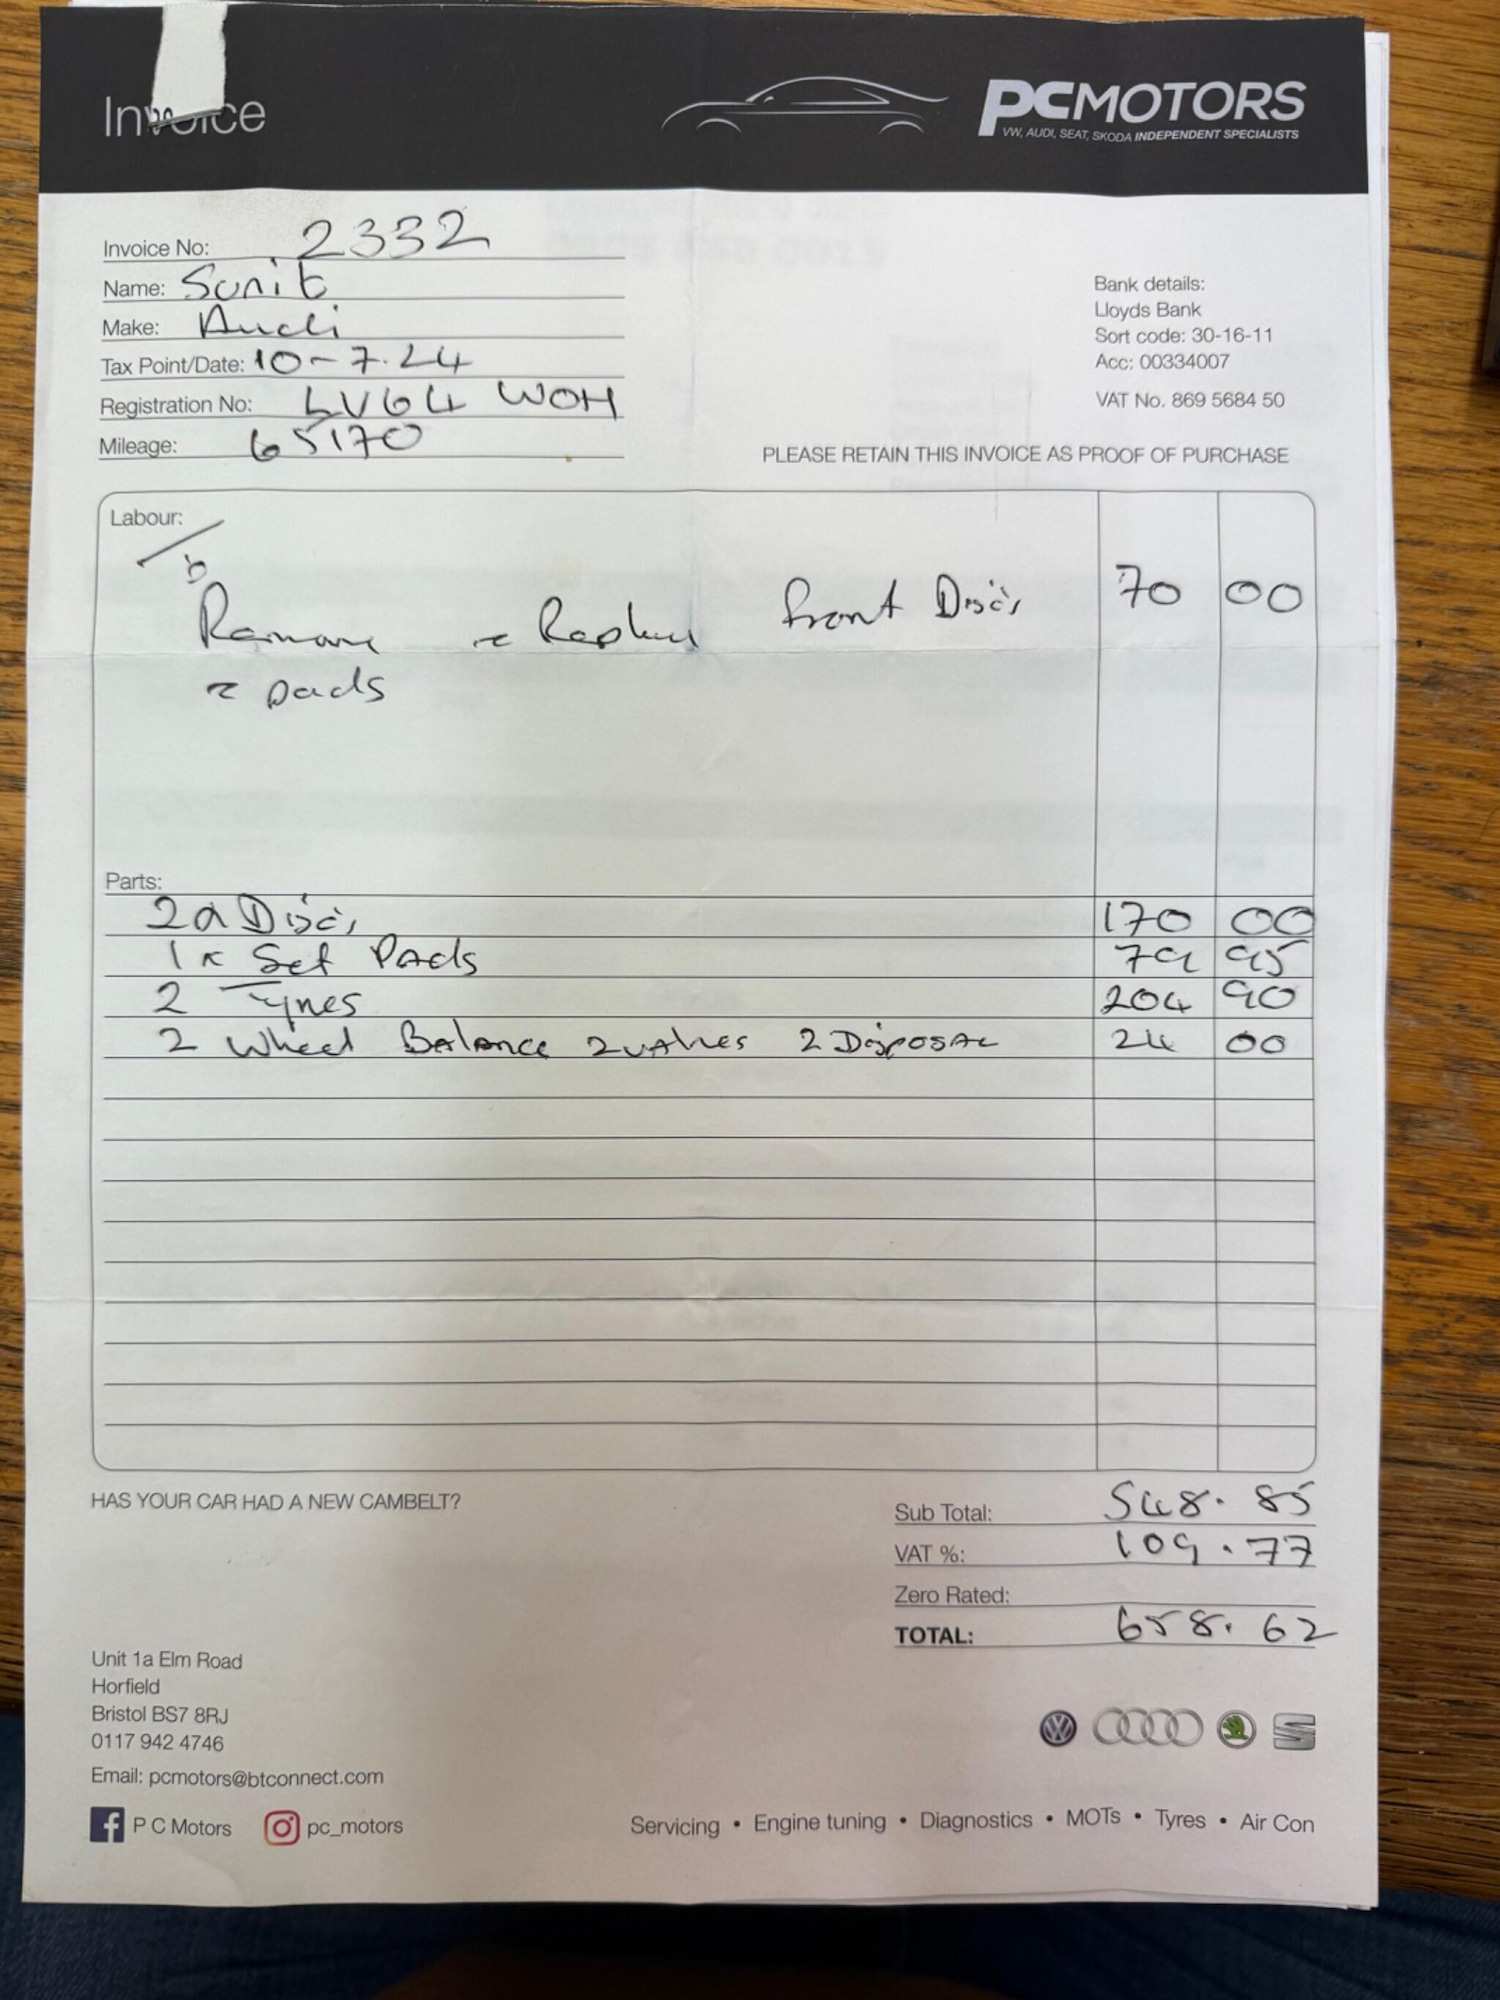 Invoice
PCMOTORS
VW, AUDI, SEAT, SKODA INDEPENDENT SPECIALISTS
Invoice No: 2332
Name: Sunit
Make: Audi
Tax Point/Date: 10-7.24
Registration No: LV64 WOH
Mileage: 65170
Bank details:
Lloyds Bank
Sort code: 30-16-11
Acc: 00334007
VAT No. 869 5684 50
PLEASE RETAIN THIS INVOICE AS PROOF OF PURCHASE
Labour:
Remove & Replace front Discs 70 00
& pads
Parts:
2x Discs 170 00
1x Set Pads 79 95
2 Tyres 204 90
2 Wheel Balance 2 valves 2 Disposal 24 00
HAS YOUR CAR HAD A NEW CAMBELT?
Sub Total: 548.85
VAT %: 109.77
Zero Rated:
TOTAL: 658.62
Unit 1a Elm Road
Horfield
Bristol BS7 8RJ
0117 942 4746
Email: pcmotors@btconnect.com
P C Motors pc_motors
Servicing • Engine tuning • Diagnostics • MOTs • Tyres • Air Con